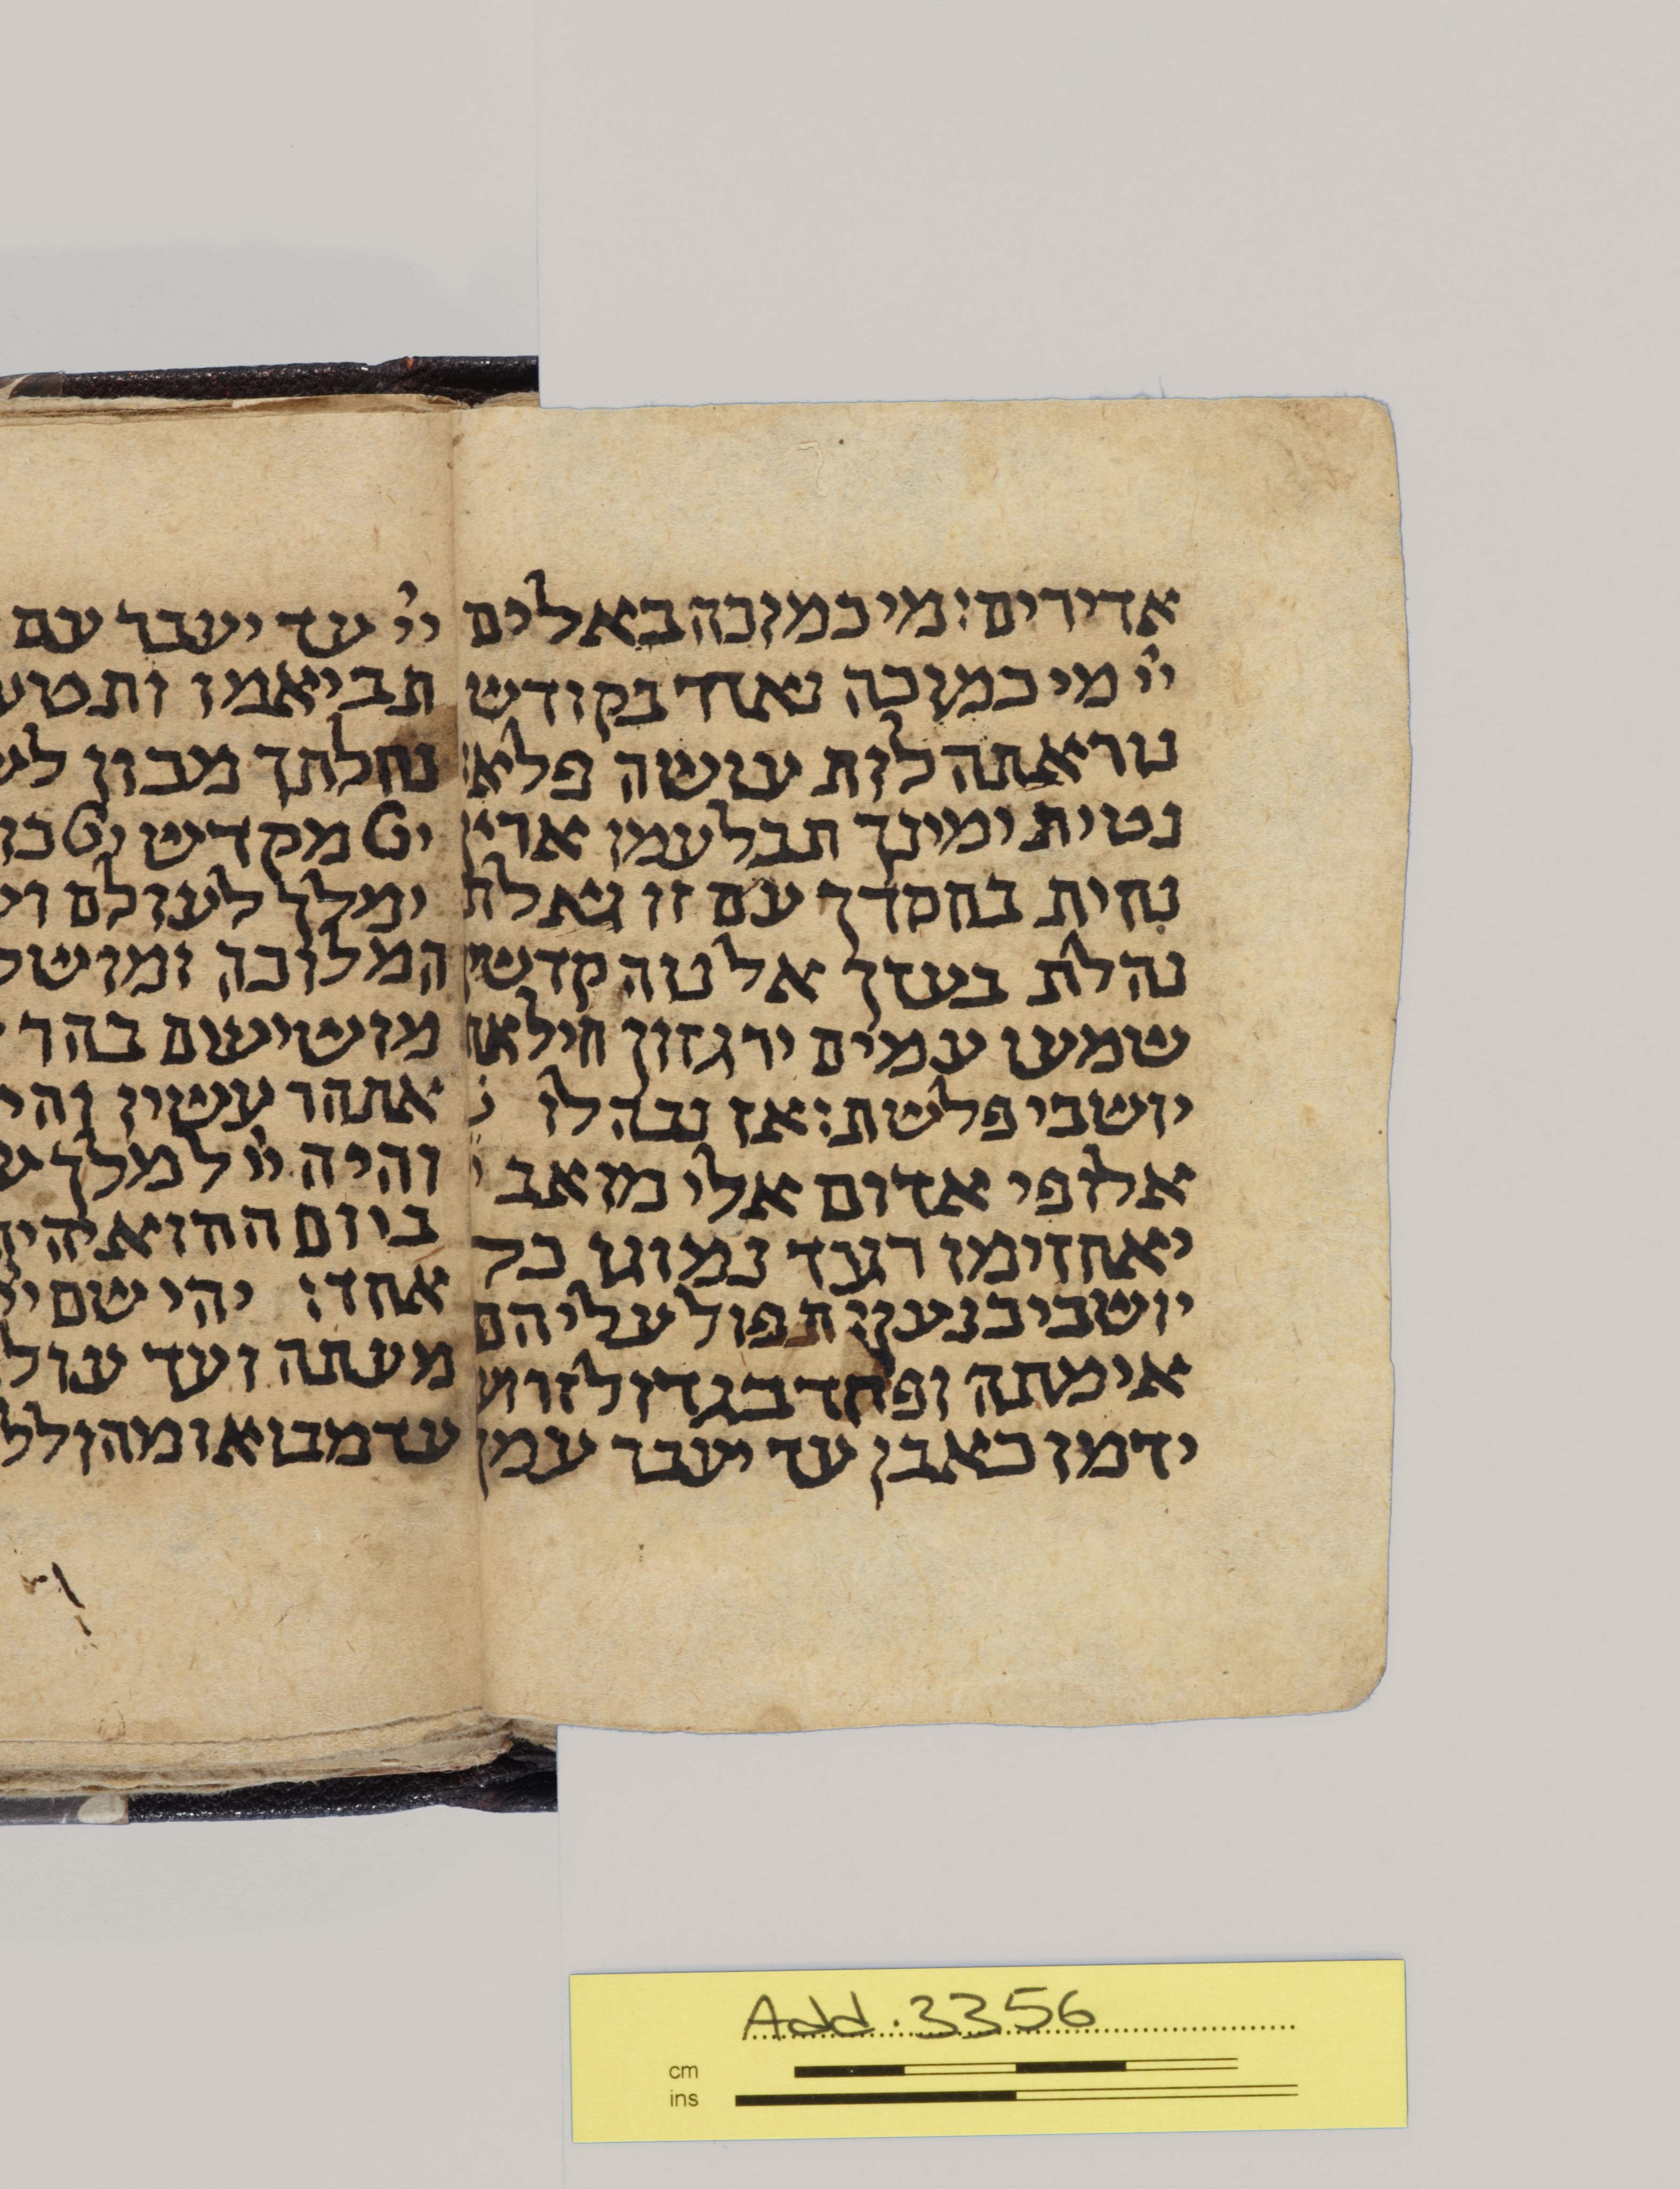 אדירים: מי כמוכה באלים
ייי מי כמוכה נאדר בקודש
נורא תהלות עושה פלא:
נטית ימינך תבלעמו ארץ
נחית בחסדך עם זו גאלת
נהלת בעזך אל נוה קדש
שמעו עמים ירגזון חיל אח
יושבי פלשת: אז נבהלו
אלופי אדום אלי מואב
יאחזימו רעד נמוגו כל
יושבי כנען: תפול עליהם
אימתה ופחד בגדול זרוע
ידמו כאבן עד יעבר עמך
ייי עד יעבר עם
תביאמו ותטע
נחלתך מכון לש
מקדש
ימלך לעולם וע
המלוכה ומושל
מושיעים בהר
את הר עשיו והי
והיה ייי למלך ע
ביום ההוא יהיה
אחד: יהי שם יי
מעתה ועד עול
עד מבואו מהולל
Add. 3356
cm
ins